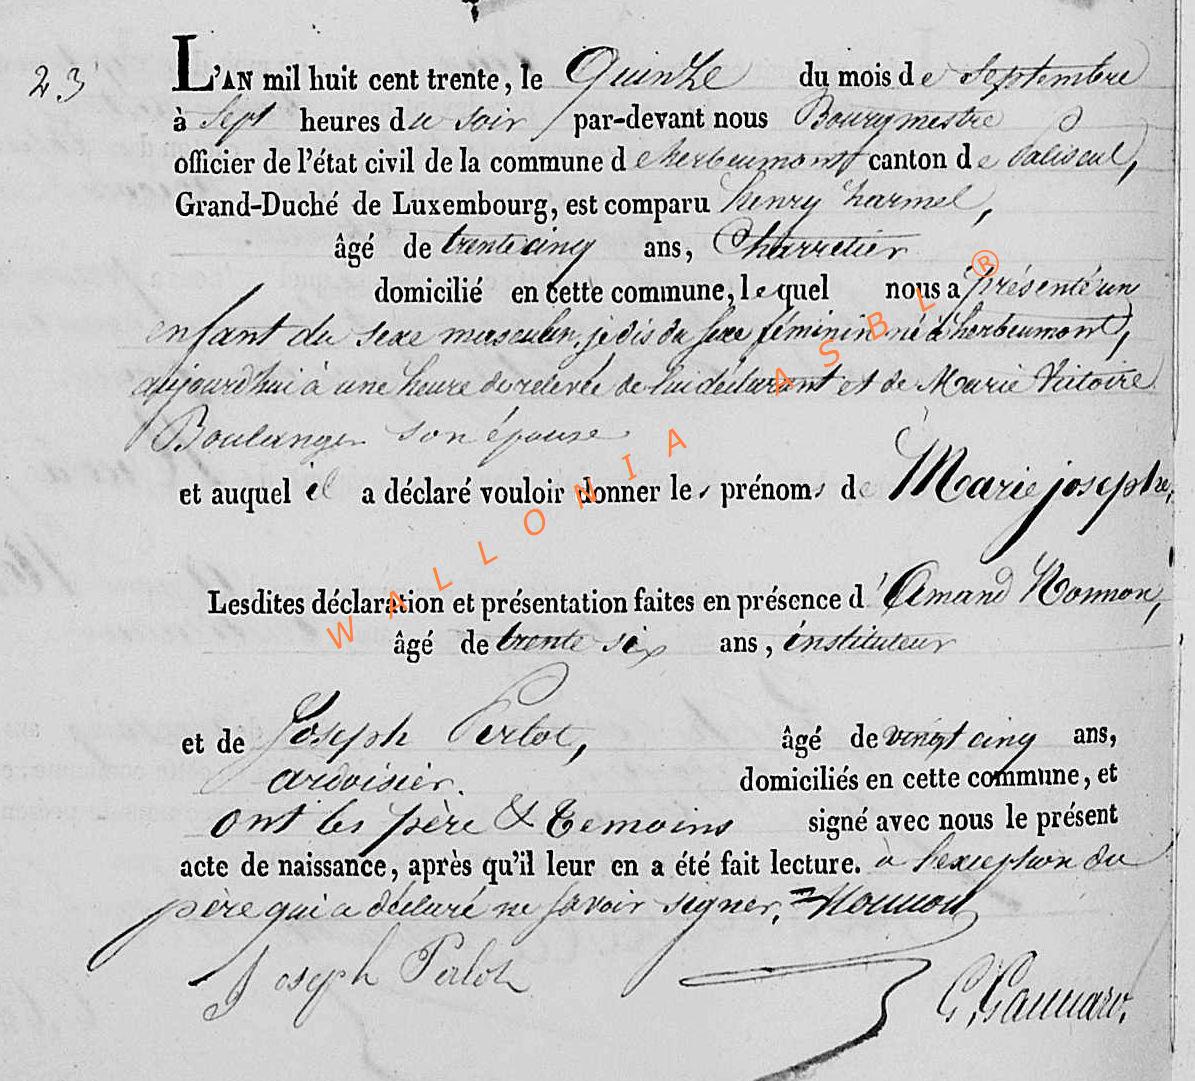 23
L'AN mil huit cent trente, le Quinze du mois de Septembre
à Sept heures du soir par-devant nous Bourgmestre
officier de l'état civil de la commune d'herbeumont canton de Paliseul,
Grand-Duché de Luxembourg, est comparu henry harmel,
âgé de trente cinq ans, Charretier
domicilié en cette commune, lequel nous a présenté un
enfant du sexe masculin, je dis du sexe féminin né à herbeumont,
aujourd'hui à une heure de relevée de lui déclarant et de Marie Victoire
Boulanger son épouse
et auquel il a déclaré vouloir donner les prénoms de Marie josephe,
Lesdites déclaration et présentation faites en présence d'Amand Nonnon,
âgé de trente six ans, instituteur
et de Joseph Perlot, âgé de vingt cinq ans,
ardoisier. domiciliés en cette commune, et
ont les père & temoins signé avec nous le présent
acte de naissance, après qu'il leur en a été fait lecture. à l'exception du
père qui a déclaré ne savoir signer. = Nonnon
Joseph Perlot
WALLONIA ASBL ®